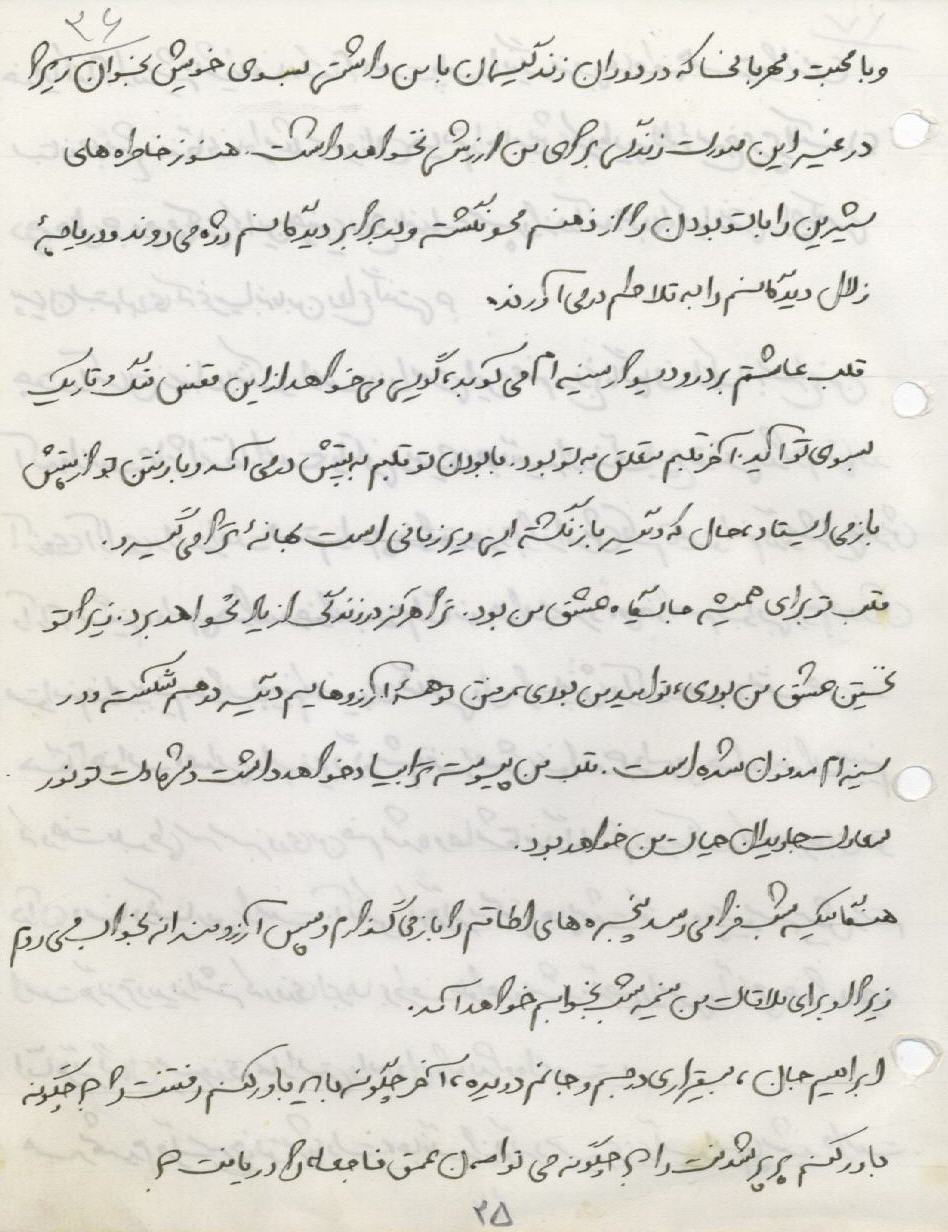 ۳۶
و با محبت و مهربانیها که در دوران زندگیمان با من داشتی بسوی خویش بخوان زیرا
در غیر این صورت زندگی برای من ارزشی نخواهد داشت. هنوز خاطره های
شیرین را با تو بودن را از ذهنم محو نگشته و در برابر دیدگانم رژه می روند و دریاچهٔ
زلال دیدگانم را به تلاطم درمی آورند.
قلب عاشقم بر در و دیوار سینه ام می کوبد، گویی می خواهد از این قفس تنگ و تاریک
بسوی تو آید. آخر قلبم متعلق به تو بود. با بودن تو قلبم به تپش درمی آمد و با رفتن تو از تپش
باز می ایستاد، حال که دیگر بازنگشته ای دیر زمانی است بهانهٔ ترا می گیرد.
قلب تو برای همیشه جایگاه عشق من بود. ترا هرگز در زندگی از یاد نخواهد برد. زیرا تو
نخستین عشق من بودی، تو امید من بودی، رفتن تو همهٔ آرزوهایم دیگر در هم شکست و در
سینه ام مدفون شده است. قلب من پیوسته ترا بیاد خواهد داشت و شهادت تو نور
سعادت جاویدان حیات من خواهد بود.
هنگامیکه شب فرا می رسد پنجره های اطاقم را باز می گذارم و سپس آرزومندانه بخواب می روم
زیرا او برای ملاقات من نیمه شب بخوابم خواهد آمد.
ابراهیم جان، بیقراری در جسم و جانم دویده، آخر چگونه باید باور کنم رفتنت را؟ چگونه
باور کنم پرپر شدنت را؟ چگونه می توانم این عمق فاجعه را دریافت؟
۳۵